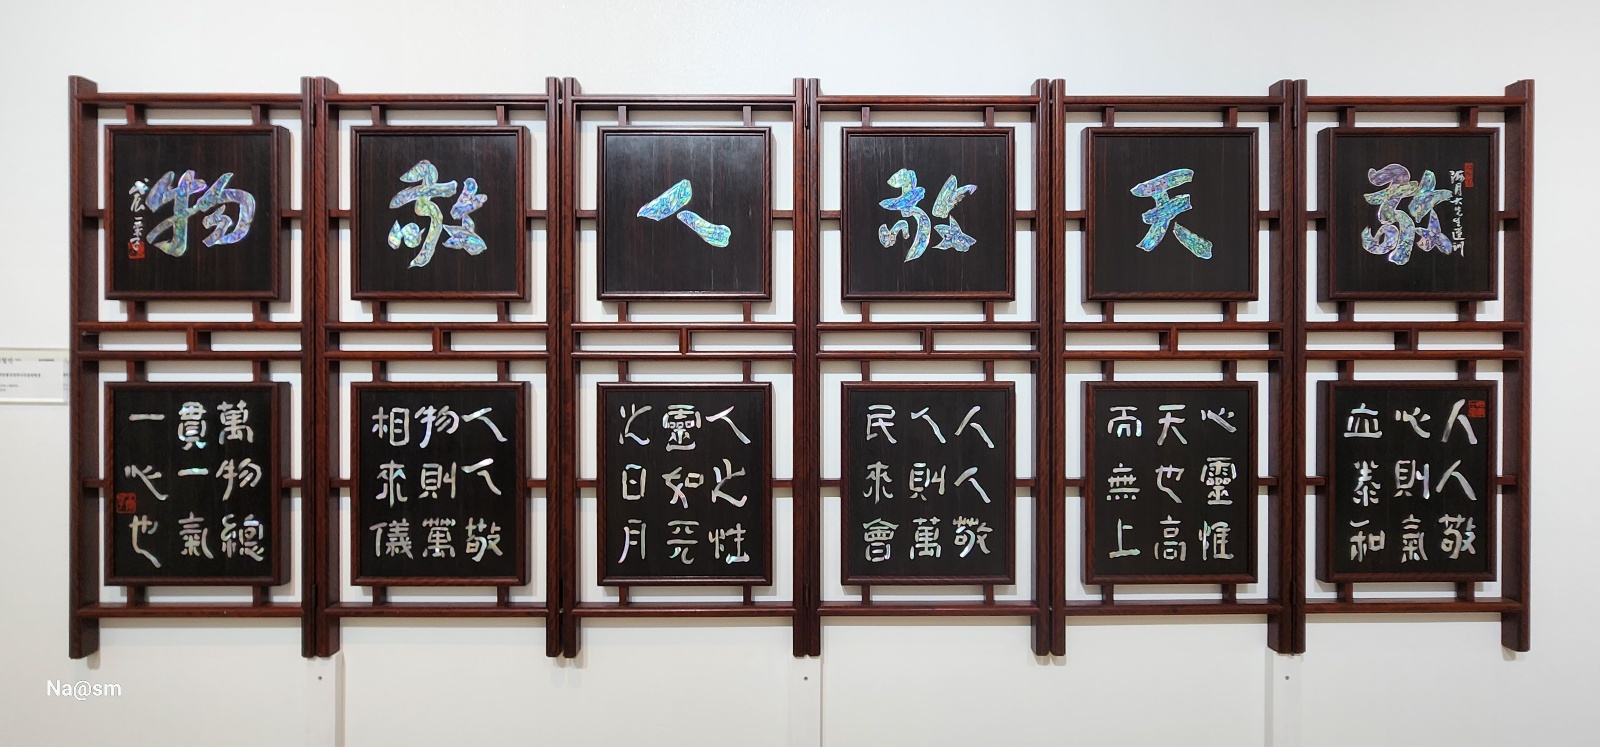 敬
海月大先生遺訓
天
敬
人
敬
物
戊辰
人人敬
心則氣
血泰和
心靈惟
天也高
而無上
人人敬
人則萬
民來會
人之性
靈如
日月
人人敬
物則萬
相來儀
萬物總
貫一氣
一心也
Na@sm